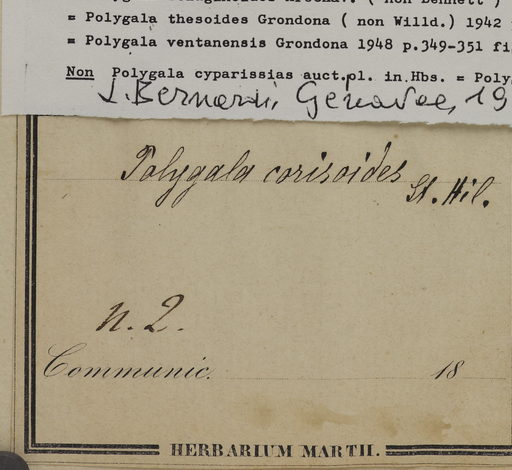 = Polygala thesoides Grondona ( non Willd.) 1942
= Polygala ventanensis Grondona 1948 p.349-351 fi
Non Polygala cyparissias auct.pl. in.Hbs. = Poly
L. Bernardi, Genavae, 19
Polygala corisoides
St. Hil.
n. 2.
Communic. 18
HERBARIUM MARTII.